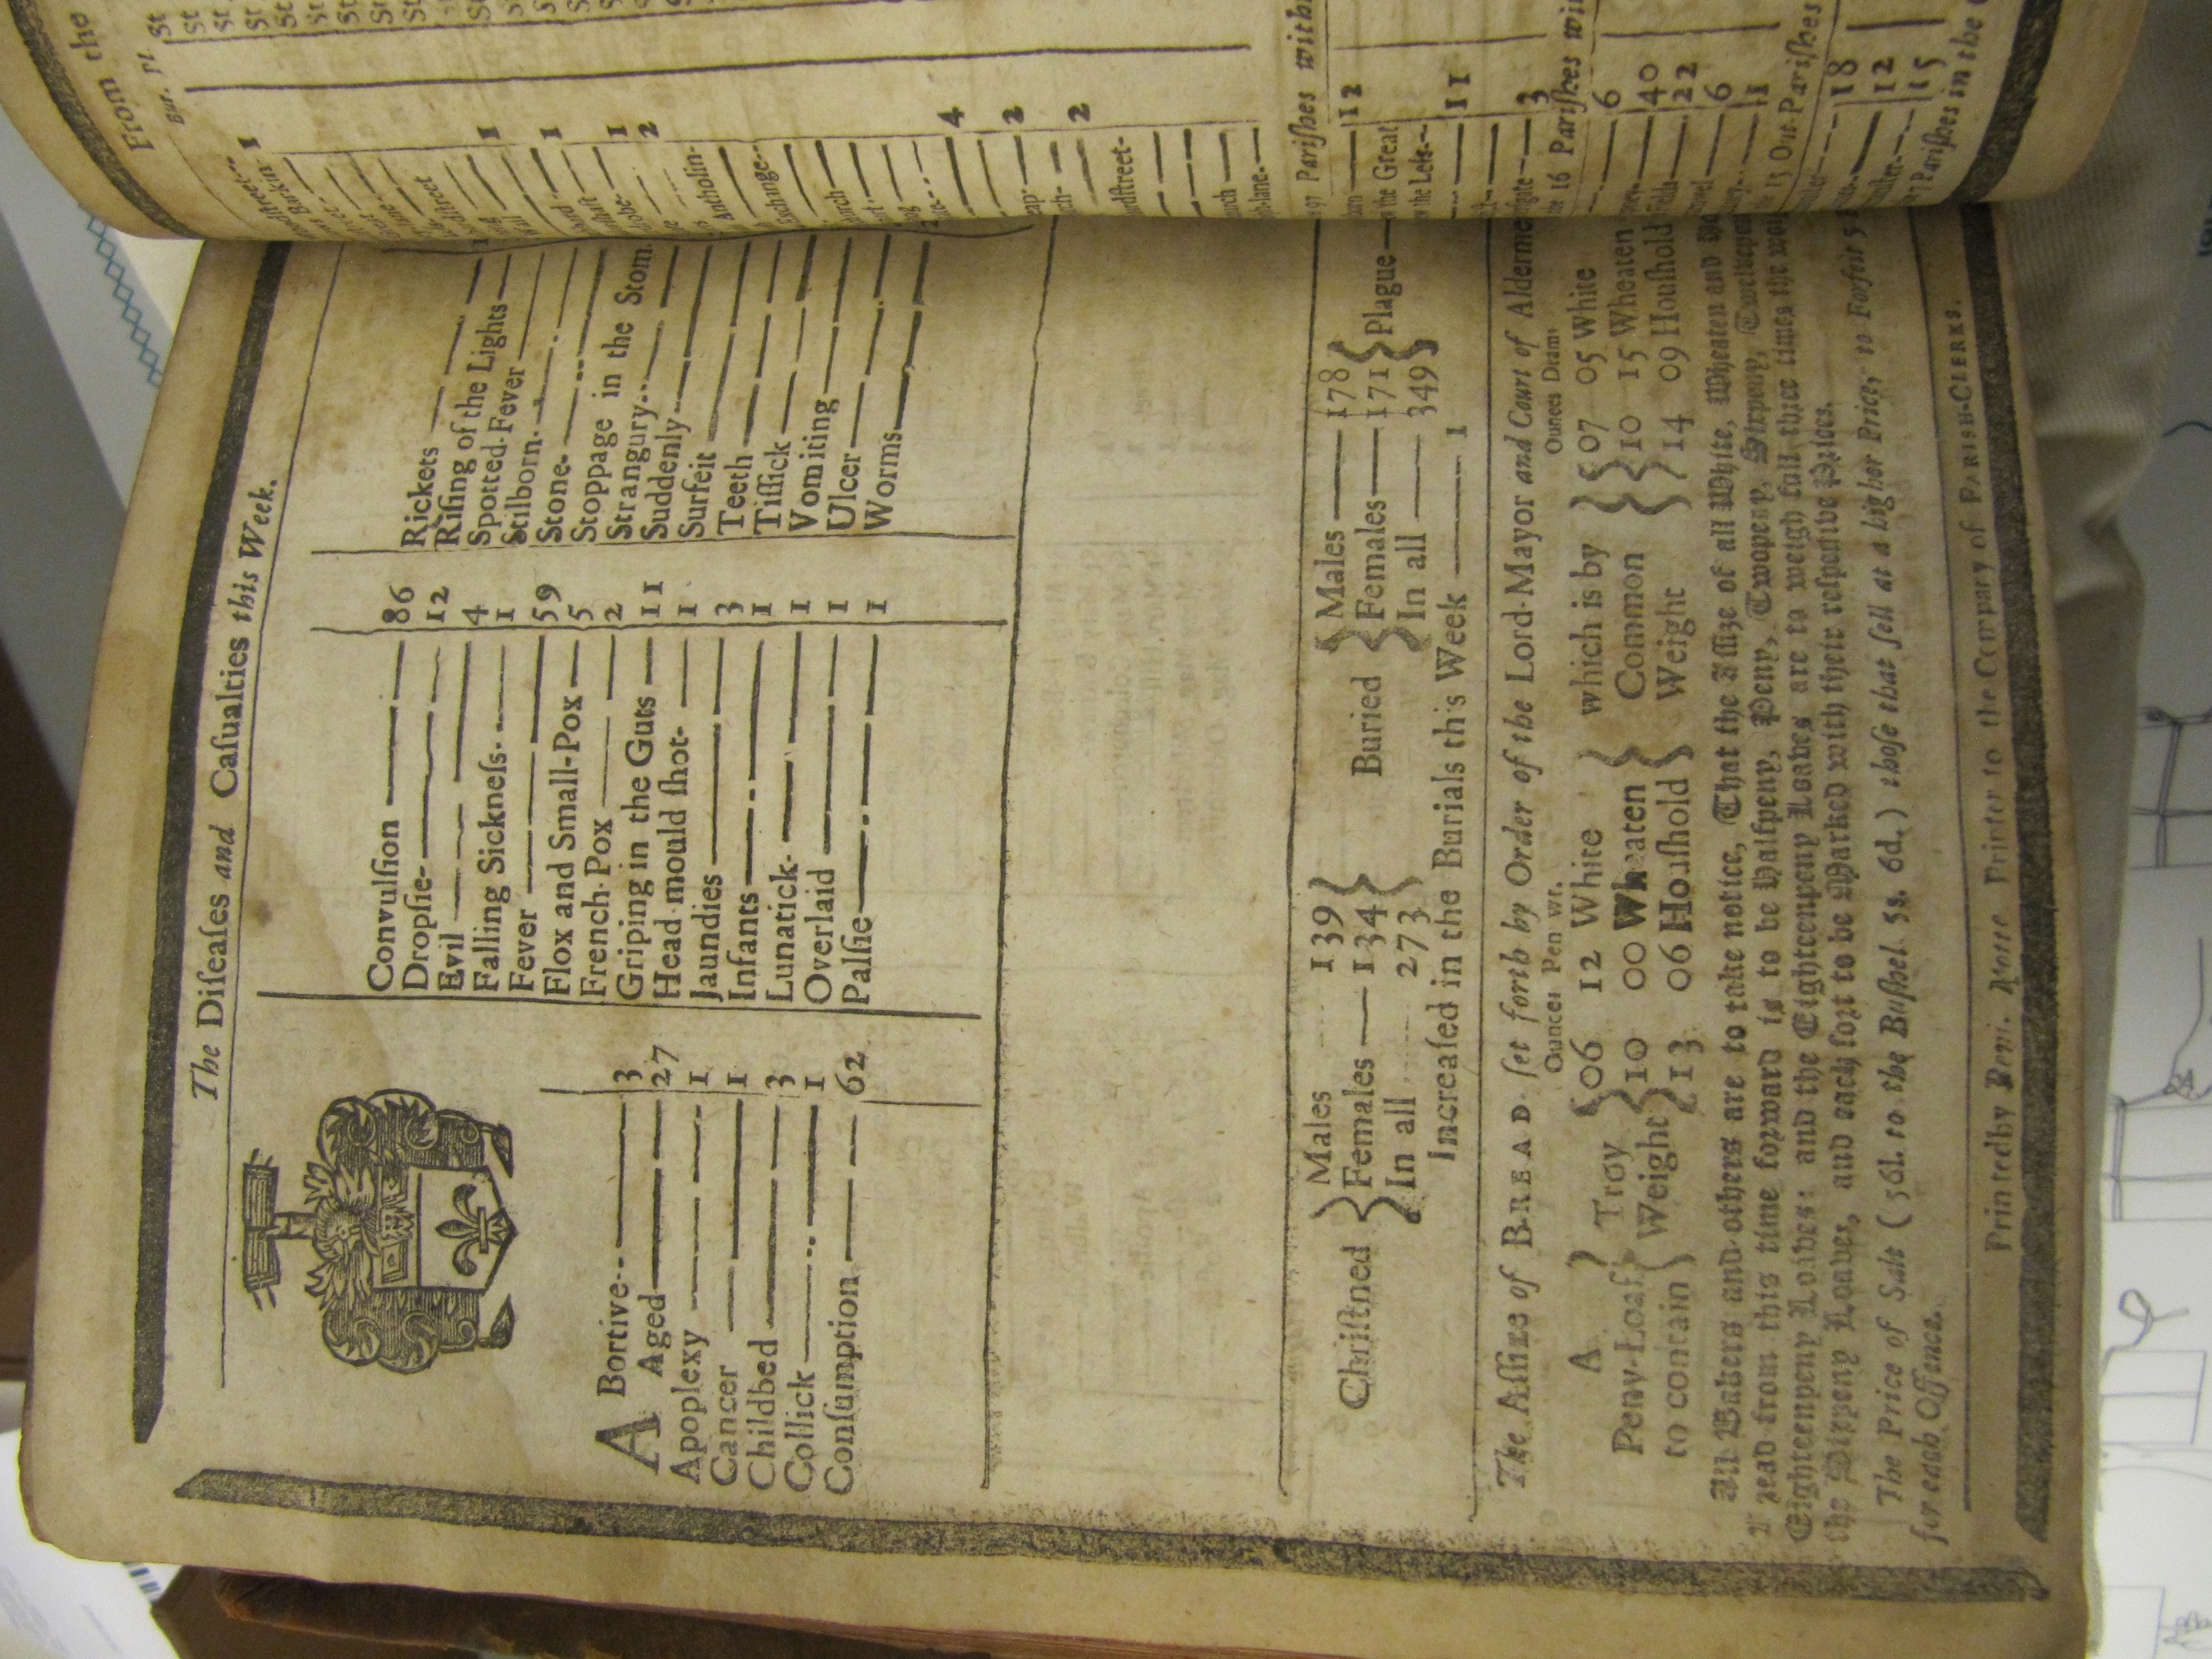 The Diſeaſes and Caſualties this Week.
A Bortive 3
Aged 27
Apoplexy 1
Cancer 1
Childbed 3
Collick 1
Conſumption 62
Convulſion 86
Dropſie 12
Evil 4
Falling Sickneſs 1
Fever 59
Flox and Small-Pox 5
French-Pox 2
Griping in the Guts 11
Head-mould ſhot 1
Jaundies 3
Infants 1
Lunatick 1
Overlaid 1
Palſie 1
Rickets
Riſing of the Lights
Spotted-Fever
Stilborn
Stone
Stoppage in the Stom
Strangury
Suddenly
Surfeit
Teeth
Tiſſick
Vomiting
Ulcer
Worms
Chriſtned { Males 139
Females 134
In all 273 }
Buried { Males 178
Females 171
In all 349 } Plague
Increaſed in the Burials this Week 1
The Aſſize of BREAD ſet forth by Order of the Lord-Mayor and Court of Aldermen
Ounces Pen wt. Ounces Drams
A Troy 06 12 White which is by 07 05 White
Peny-Loaf Weight 10 00 Wheaten Common 10 15 Wheaten
to contain 13 06 Houſhold Weight 14 09 Houſhold
All Bakers and others are to take notice, That the Aſſize of all White, Wheaten and
read from this time forward is to be Halfpeny, Peny, Twopeny, Sixpeny, Twelvepeny
Eighteenpeny Loaves: and the Eighteenpeny Loaves are to weigh full three times the
the Sixpeny Loaves, and each ſort to be Marked with their reſpective Prices.
The Price of Salt (56l. to the Buſhel 5s. 6d.) thoſe that ſell at a higher Price, to Forfeit 5
for each Offence.
Printed by Benj. Motte Printer to the Company of PARISH-CLERKS.
From the
Bur. Pl.
St
St
St
St
St
St
1
1
1
1
2
4
2
2
97 Pariſhes with
12
the Great
the Leſs
11
3
16 Pariſhes wi
6
40
22
6
1
Out-Pariſhes
18
12
15
7 Pariſhes in the